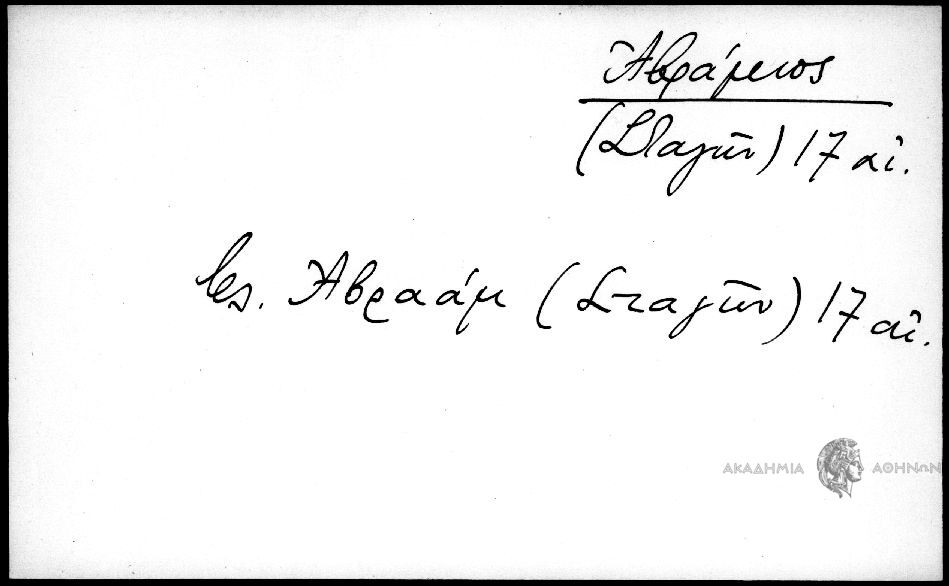 Ἀβράμιος
(Σταγῶν) 17 αἰ.
Ἀβραάμ (Σταγῶν) 17 αἰ.
ΑΚΑΔΗΜΙΑ ΑΘΗΝΩΝ